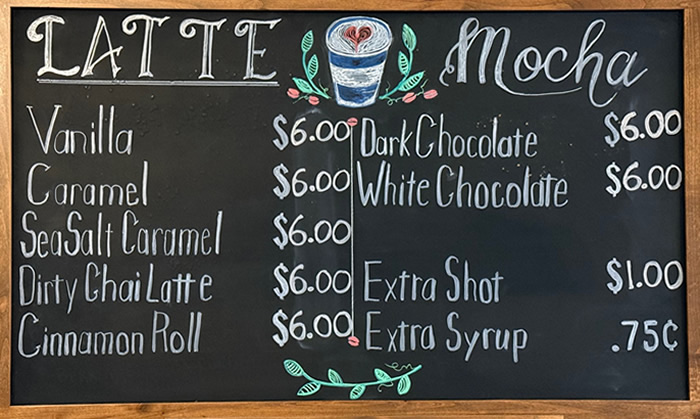 LATTE
Vanilla $6.00
Caramel $6.00
Sea Salt Caramel $6.00
Dirty Chai Latte $6.00
Cinnamon Roll $6.00
Mocha
Dark Chocolate $6.00
White Chocolate $6.00
Extra Shot $1.00
Extra Syrup .75¢